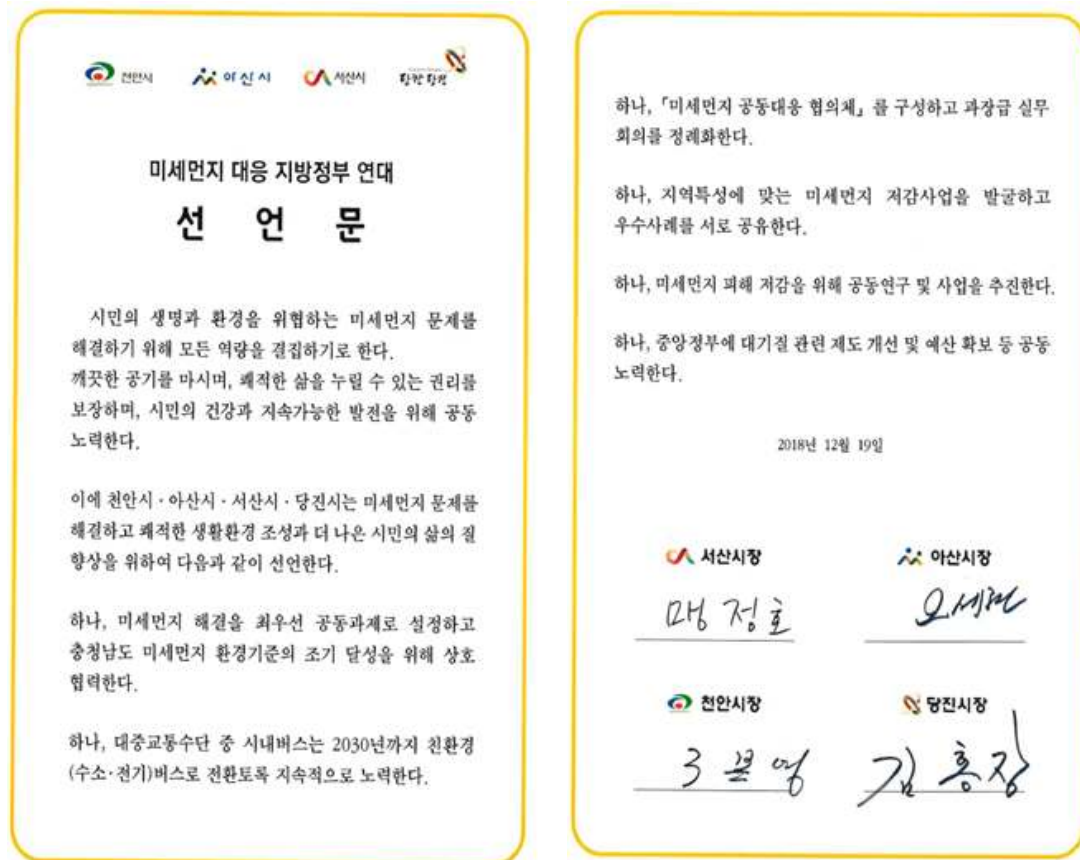 천안시 아산시 서산시 당찬당진
미세먼지 대응 지방정부 연대
선 언 문
시민의 생명과 환경을 위협하는 미세먼지 문제를
해결하기 위해 모든 역량을 결집하기로 한다.
깨끗한 공기를 마시며, 쾌적한 삶을 누릴 수 있는 권리를
보장하며, 시민의 건강과 지속가능한 발전을 위해 공동
노력한다.
이에 천안시·아산시·서산시·당진시는 미세먼지 문제를
해결하고 쾌적한 생활환경 조성과 더 나은 시민의 삶의 질
향상을 위하여 다음과 같이 선언한다.
하나, 미세먼지 해결을 최우선 공동과제로 설정하고
충청남도 미세먼지 환경기준의 조기 달성을 위해 상호
협력한다.
하나, 대중교통수단 중 시내버스는 2030년까지 친환경
(수소·전기)버스로 전환토록 지속적으로 노력한다.
하나, 「미세먼지 공동대응 협의체」를 구성하고 과장급 실무
회의를 정례화한다.
하나, 지역특성에 맞는 미세먼지 저감사업을 발굴하고
우수사례를 서로 공유한다.
하나, 미세먼지 피해 저감을 위해 공동연구 및 사업을 추진한다.
하나, 중앙정부에 대기질 관련 제도 개선 및 예산 확보 등 공동
노력한다.
2018년 12월 19일
서산시장 아산시장
맹정호 오세현
천안시장 당진시장
구본영 김홍장